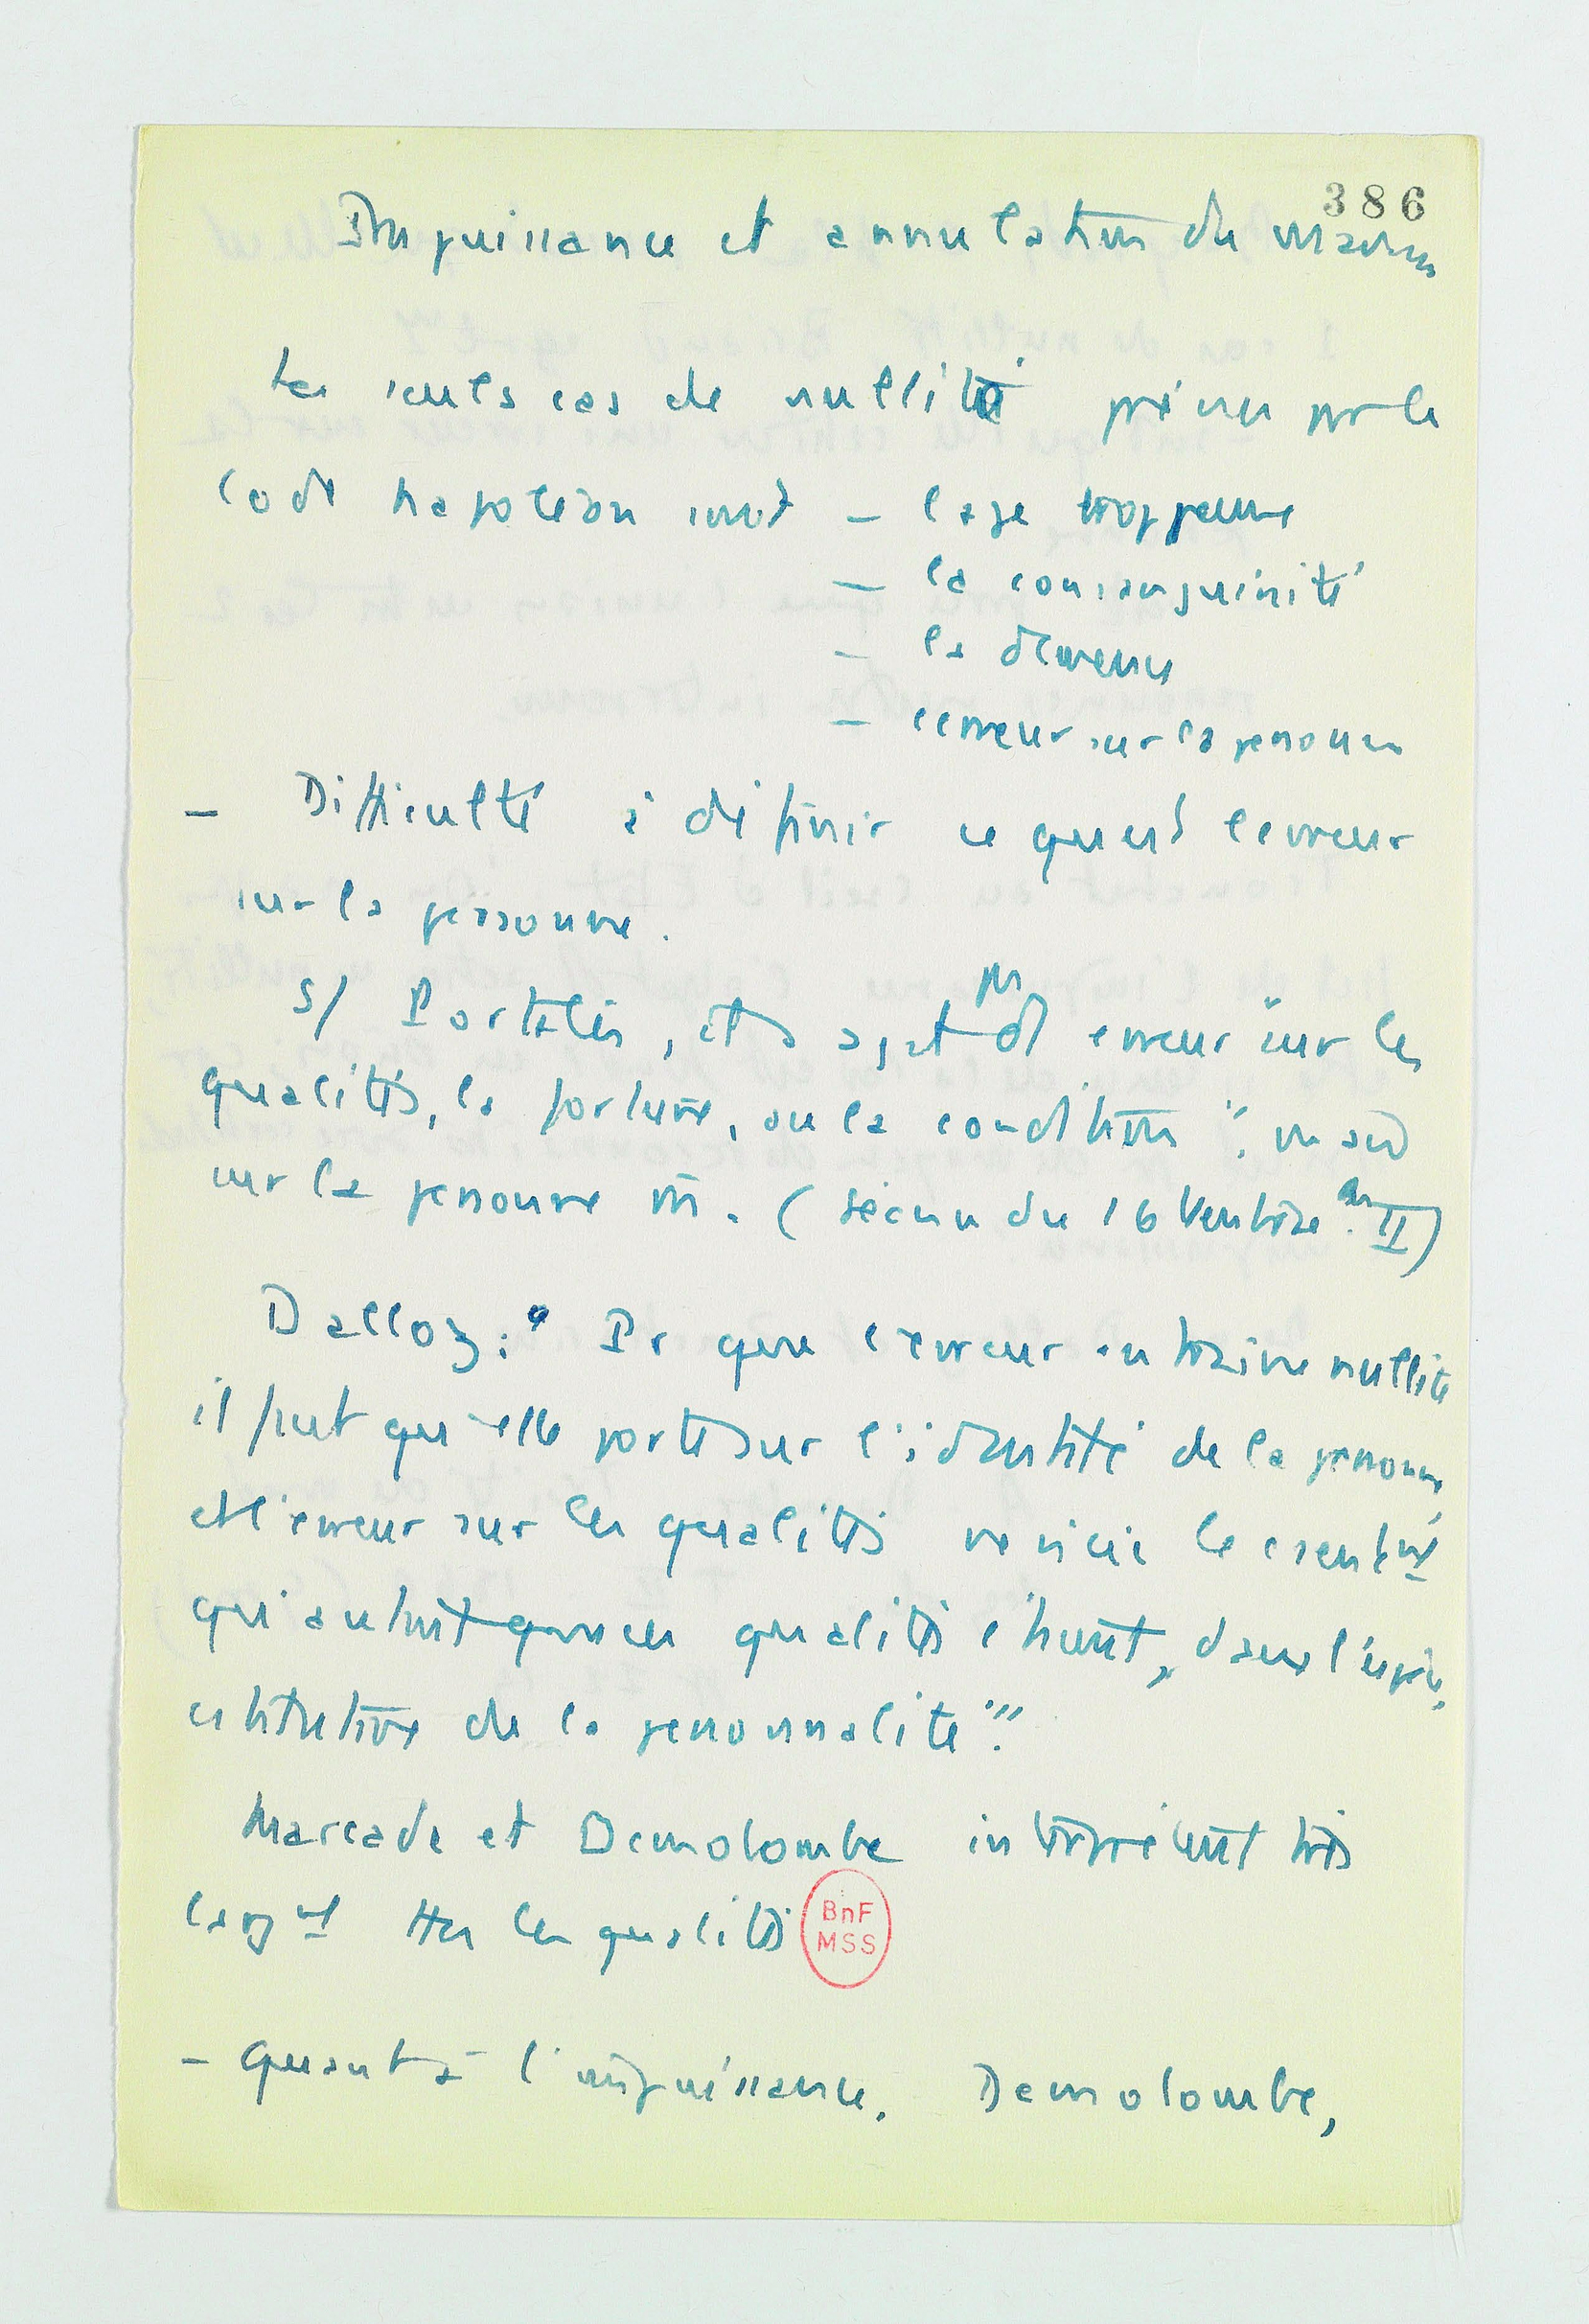 386
Impuissance et annulation du mariage
Les seuls cas de nullité prévus par le
Code Napoléon sont – l'age trop jeune
– la consanguinité
– la démence
– l'erreur sur la personne
– Difficulté à définir ce qu'est l'erreur
sur la personne.
S/ Portalis, il s'agit pas d'1 erreur "sur les
qualités, la fortune, ou la condition",
sur la personne m. (séance du 16 Ventôse an II)
Dalloz : "Pr que l'erreur entraine nullité
il faut qu'elle porte sur l'identité de la personne,
et l'erreur sur les qualités ne vicie le
qu'autant que ces qualités étaient, dans l'esprit,
de la personnalité".
Marcade et Demolombe interprètent très
largt ttes les qualités
BnF
MSS
– Quant à l'impuissance. Demolombe,